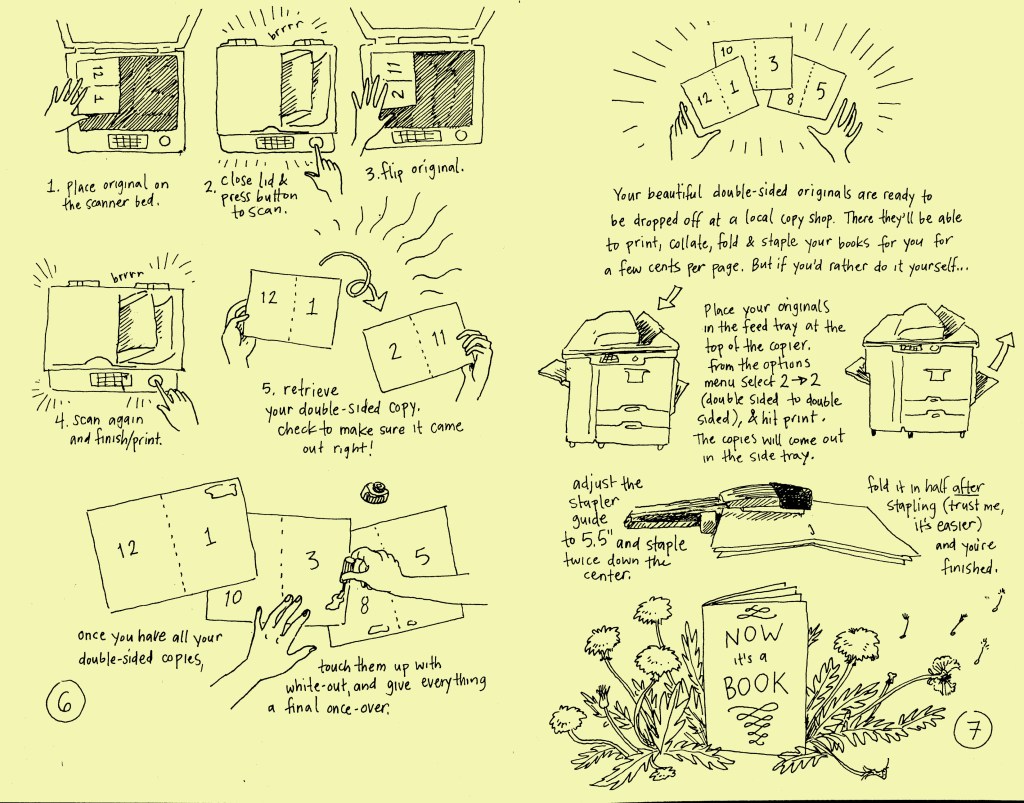 12 1
brrrr
2 11
1. place original on
the scanner bed.
2. close lid &
press button
to scan.
3. flip original.
brrrr
4. scan again
and finish/print.
12 1
2 11
5. retrieve
your double-sided copy.
check to make sure it came
out right!
12 1
10 3
8 5
once you have all your
double-sided copies,
touch them up with
white-out, and give everything
a final once-over.
6
12 1
10 3
8 5
Your beautiful double-sided originals are ready to
be dropped off at a local copy shop. There they'll be able
to print, collate, fold & staple your books for you for
a few cents per page. But if you'd rather do it yourself...
Place your originals
in the feed tray at the
top of the copier.
from the options
menu select 2→2
(double sided to double
sided), & hit print.
The copies will come out
in the side tray.
adjust the
stapler
guide
to 5.5" and staple
twice down the
center.
fold it in half after
stapling (trust me,
it's easier)
and you're
finished.
NOW
it's a
BOOK
7